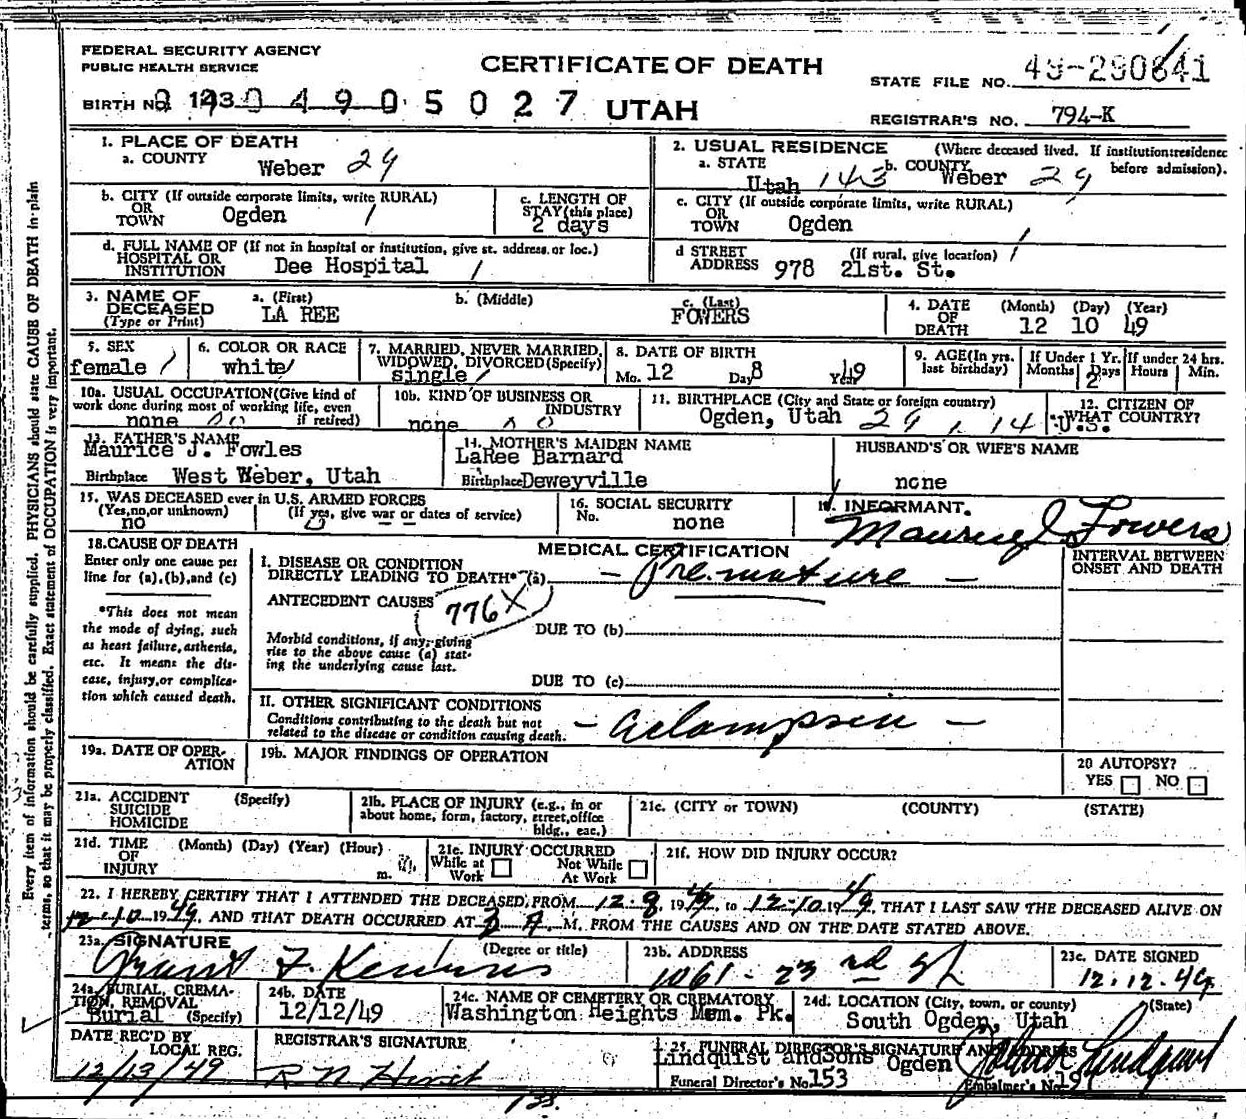 FEDERAL SECURITY AGENCY
PUBLIC HEALTH SERVICE
CERTIFICATE OF DEATH
STATE FILE NO. 49-290641
BIRTH NO. 4905027 UTAH
REGISTRAR'S NO. 794-K
Every item of information should be carefully supplied. PHYSICIANS should state CAUSE OF DEATH in plain
terms, so that it may be properly classified. Exact statement of OCCUPATION is very important.
1. PLACE OF DEATH
a. COUNTY
Weber 29
2. USUAL RESIDENCE (Where deceased lived. If institution: residence before admission).
a. STATE Utah 143 b. COUNTY Weber 29
b. CITY (If outside corporate limits, write RURAL)
OR
TOWN Ogden 1
c. LENGTH OF
STAY (this place)
2 days
c. CITY (If outside corporate limits, write RURAL)
OR
TOWN Ogden 1
d. FULL NAME OF (If not in hospital or institution, give st. address or loc.)
HOSPITAL OR
INSTITUTION Dee Hospital 1
d STREET (If rural, give location) 1
ADDRESS 978 21st. St.
3. NAME OF
DECEASED
(Type or Print)
a. (First)
LA REE
b. (Middle)
c. (Last)
FOWERS
4. DATE
OF
DEATH
(Month) (Day) (Year)
12 10 49
5. SEX
female /
6. COLOR OR RACE
white/
7. MARRIED, NEVER MARRIED,
WIDOWED, DIVORCED (Specify)
single /
8. DATE OF BIRTH
Mo. 12 Day 8 Year 49
9. AGE (In yrs.
last birthday)
If Under 1 Yr.
Months Days
2
If under 24 hrs.
Hours Min.
10a. USUAL OCCUPATION (Give kind of
work done during most of working life, even
if retired)
none
10b. KIND OF BUSINESS OR
INDUSTRY
none
11. BIRTHPLACE (City and State or foreign country)
Ogden, Utah 29 1 14
12. CITIZEN OF
WHAT COUNTRY?
U.S.
13. FATHER'S NAME
Maurice J. Fowles
Birthplace West Weber, Utah
14. MOTHER'S MAIDEN NAME
LaRee Barnard
Birthplace Deweyville
HUSBAND'S OR WIFE'S NAME
none
15. WAS DECEASED ever in U.S. ARMED FORCES
(Yes, no, or unknown) (If yes, give war or dates of service)
no
16. SOCIAL SECURITY
No. none
17. INFORMANT.
Maurice J Fowers
18. CAUSE OF DEATH
Enter only one cause per
line for (a), (b), and (c)
*This does not mean
the mode of dying, such
as heart failure, asthenia,
etc. It means the dis-
ease, injury, or complica-
tion which caused death.
MEDICAL CERTIFICATION
I. DISEASE OR CONDITION
DIRECTLY LEADING TO DEATH* (a) — Premature —
ANTECEDENT CAUSES 776X
DUE TO (b)
Morbid conditions, if any, giving
rise to the above cause (a) stat-
ing the underlying cause last.
DUE TO (c)
II. OTHER SIGNIFICANT CONDITIONS
Conditions contributing to the death but not
related to the disease or condition causing death.
INTERVAL BETWEEN
ONSET AND DEATH
19a. DATE OF OPER-
ATION
19b. MAJOR FINDINGS OF OPERATION
20 AUTOPSY?
YES NO
21a. ACCIDENT (Specify)
SUICIDE
HOMICIDE
21b. PLACE OF INJURY (e.g., in or
about home, form, factory, street, office
bldg., eac.)
21c. (CITY or TOWN) (COUNTY) (STATE)
21d. TIME (Month) (Day) (Year) (Hour)
OF
INJURY m.
21e. INJURY OCCURRED
While at Work Not While At Work
21f. HOW DID INJURY OCCUR?
22. I HEREBY CERTIFY THAT I ATTENDED THE DECEASED FROM 12-8, 1949, to 12-10, 1949, THAT I LAST SAW THE DECEASED ALIVE ON
12-10 1949, AND THAT DEATH OCCURRED AT 3 A M. FROM THE CAUSES AND ON THE DATE STATED ABOVE.
23a. SIGNATURE (Degree or title)
Grant F.
23b. ADDRESS
1061 - 23rd St
23c. DATE SIGNED
12.12.49
24a. BURIAL, CREMA-
TION, REMOVAL
Burial (Specify)
24b. DATE
12/12/49
24c. NAME OF CEMETERY OR CREMATORY
Washington Heights Mem. Pk.
24d. LOCATION (City, town, or county) (State)
South Ogden, Utah
DATE REC'D BY
LOCAL REG.
12/13/49
REGISTRAR'S SIGNATURE
25. FUNERAL DIRECTOR'S SIGNATURE AND ADDRESS
Lindquist and Sons Ogden
Funeral Director's No. 153
Embalmer's No.